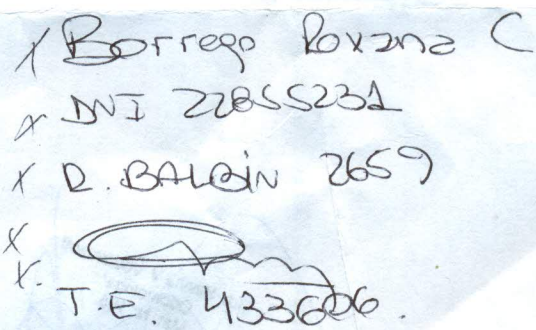 x Borrego Roxana C
x DNI 22855231
x R. BALBIN 2659
x
x.
T.E. 433606.